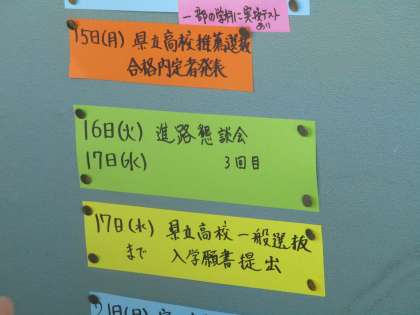 一部の学科に実技テスト
あり
15日(月) 県立高校推薦選抜
合格内定者発表
16日(火) 進路懇談会
17日(水) 3回目
17日(水) 県立高校一般選抜
まで 入学願書提出
21日(日)